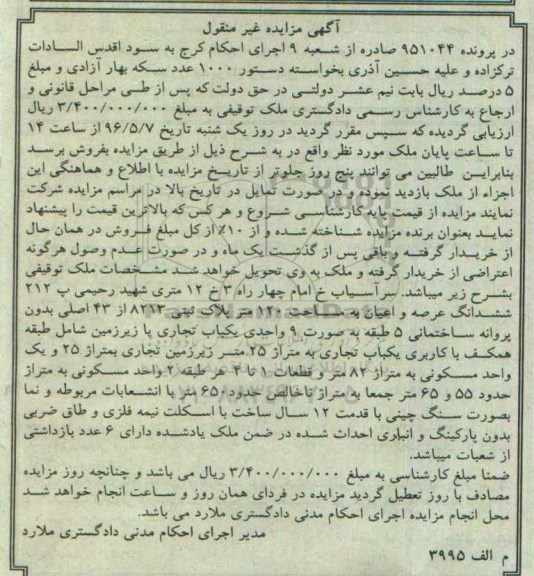 آگهی مزایده غیر منقول
در پرونده ۹۵۱۰۴۴ صادره از شعبه ۹ اجرای احکام کرج به سود اقدس السادات
ترکزاده و علیه حسین آذری بخواسته دستور ۱۰۰۰ عدد سکه بهار آزادی و مبلغ
۵ درصد ریال بابت نیم عشر دولتی در حق دولت که پس از طی مراحل قانونی و
ارجاع به کارشناس رسمی دادگستری ملک توقیفی به مبلغ ۳/۴۰۰/۰۰۰/۰۰۰ ریال
ارزیابی گردیده که سپس مقرر گردید در روز یک شنبه تاریخ ۹۶/۵/۷ از ساعت ۱۴
تا ساعت پایان ملک مورد نظر واقع در به شرح ذیل از طریق مزایده بفروش برسد
بنابراین طالبین می توانند پنج روز جلوتر از تاریخ مزایده با اطلاع و هماهنگی این
اجزاء از ملک بازدید نموده و در صورت تمایل در تاریخ بالا در مراسم مزایده شرکت
نمایند مزایده از قیمت پایه کارشناسی شروع و هر کس که بالاترین قیمت را پیشنهاد
نماید بعنوان برنده مزایده شناخته شده و از ۱۰٪ از کل مبلغ فروش در همان حال
از خریدار گرفته و باقی پس از گذشت یک ماه و در صورت عدم وصول هرگونه
اعتراضی از خریدار گرفته و ملک به وی تحویل خواهد شد مشخصات ملک توقیفی
بشرح زیر میباشد. سرآسیاب خ امام چهار راه ۳ خ ۱۲ متری شهید رحیمی پ ۲۱۲
ششدانگ عرصه و اعیان به مساحت ۱۲۰ متر پلاک ثبتی ۸۲۱۳ از ۴۳ اصلی بدون
پروانه ساختمانی ۵ طبقه به صورت ۹ واحدی یکباب تجاری با زیرزمین شامل طبقه
همکف با کاربری یکباب تجاری به متراژ ۲۵ متر زیرزمین تجاری بمتراژ ۲۵ و یک
واحد مسکونی به متراژ ۸۲ متر و قطعات ۱ تا ۴ هر طبقه ۲ واحد مسکونی به متراژ
حدود ۵۵ و ۶۵ متر جمعا به متراژ ناخالص حدود ۶۵۰ متر با انشعابات مربوطه و نما
بصورت سنگ چینی با قدمت ۱۲ سال ساخت با اسکلت نیمه فلزی و طاق ضربی
بدون پارکینگ و انباری احداث شده در ضمن ملک یادشده دارای ۶ عدد بازداشتی
از شعبات میباشد.
ضمنا مبلغ کارشناسی به مبلغ ۳/۴۰۰/۰۰۰/۰۰۰ ریال می باشد و چنانچه روز مزایده
مصادف با روز تعطیل گردید مزایده در فردای همان روز و ساعت انجام خواهد شد
محل انجام مزایده اجرای احکام مدنی دادگستری ملارد می باشد.
مدیر اجرای احکام مدنی دادگستری ملارد
م الف ۳۹۹۵